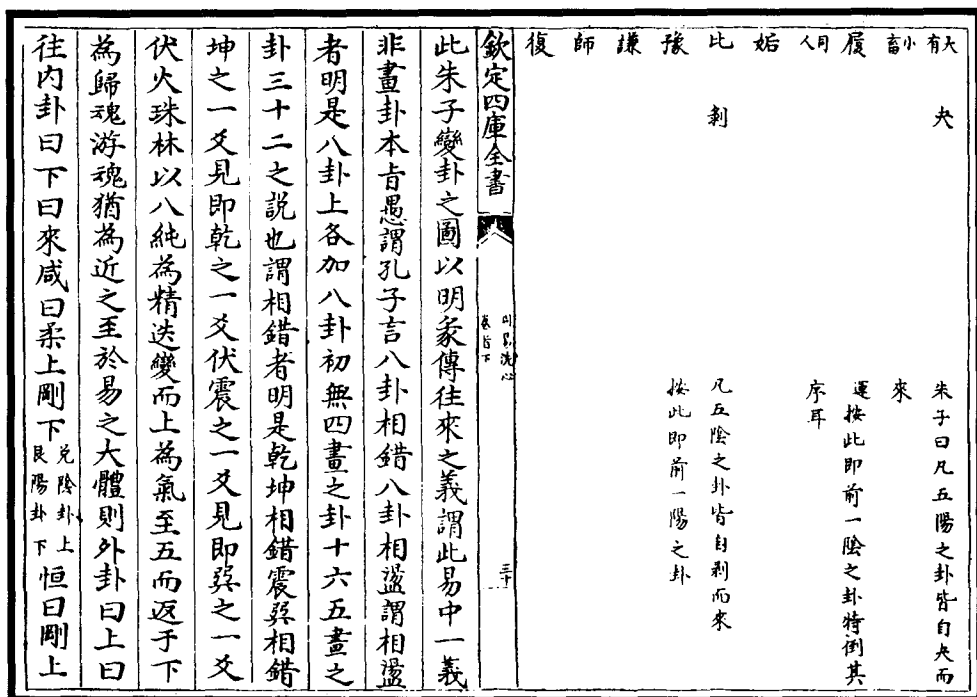 大有　夬　朱子曰凡五陽之卦皆自夬而
小畜　來
履　運按此即前一陰之卦特倒其
同人　序耳
姤
比　剝　凡五陰之卦皆自剝而來
豫　按此即前一陽之卦
謙
師
復
欽定四庫全書　周易洗心卷首下　三十
此朱子變卦之圖以明彖傳往來之義謂此易中一義
非畫卦本旨愚謂孔子言八卦相錯八卦相盪謂相盪
者明是八卦上各加八卦初無四畫之卦十六五畫之
卦三十二之説也謂相錯者明是乾坤相錯震巽相錯
坤之一爻見即乾之一爻伏震之一爻見即巽之一爻
伏火珠林以八純為精迭變而上為氣至五而返于下
為歸魂游魂猶為近之至於易之大體則外卦曰上曰
往内卦曰下曰來咸曰柔上剛下兌陰卦上艮陽卦下恒曰剛上